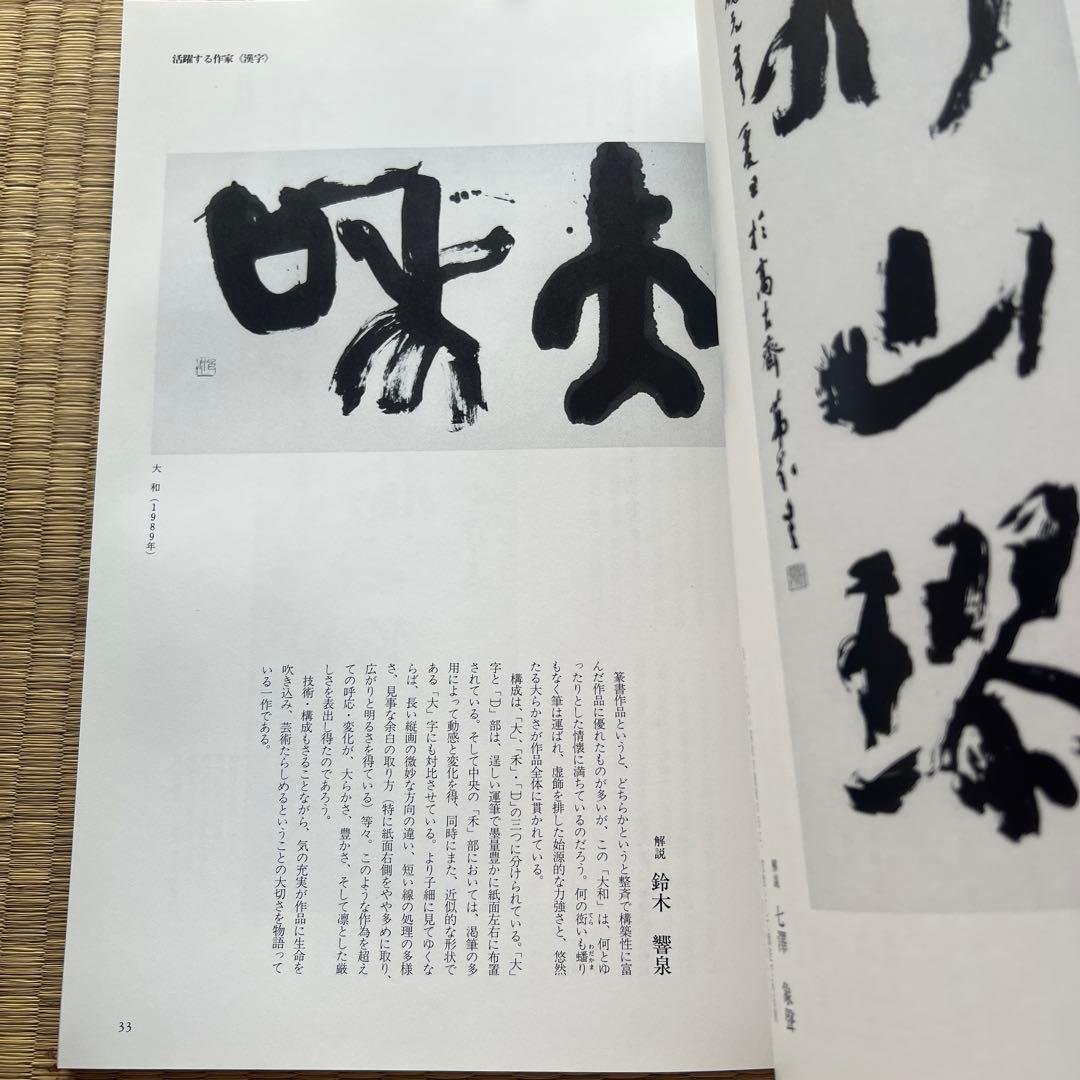 活躍する作家《漢字》
大和
大 和（1989年）
解説 鈴木 響泉
篆書作品というと、どちらかというと整斉で構築性に富
んだ作品に優れたものが多いが、この「大和」は、何とゆ
ったりとした情懐に満ちているのだろう。何の衒いも蟠り
もなく筆は運ばれ、虚飾を排した始源的な力強さと、悠然
たる大らかさが作品全体に貫かれている。
構成は、「大」「禾」・「口」の三つに分けられている。「大」
字と「口」部は、逞しい運筆で墨量豊かに紙面左右に布置
されている。そして中央の「禾」部においては、渇筆の多
用によって動感と変化を得、同時にまた、近似的な形状で
ある「大」字にも対比させている。より子細に見てゆくな
らば、長い縦画の微妙な方向の違い、短い線の処理の多様
さ、見事な余白の取り方（特に紙面右側をやや多めに取り、
広がりと明るさを得ている）等々。このような作為を超え
ての呼応・変化が、大らかさ、豊かさ、そして凛とした厳
しさを表出し得たのであろう。
技術・構成もさることながら、気の充実が作品に生命を
吹き込み、芸術たらしめるということの大切さを物語って
いる一作である。
33
山
琴
解説 七澤